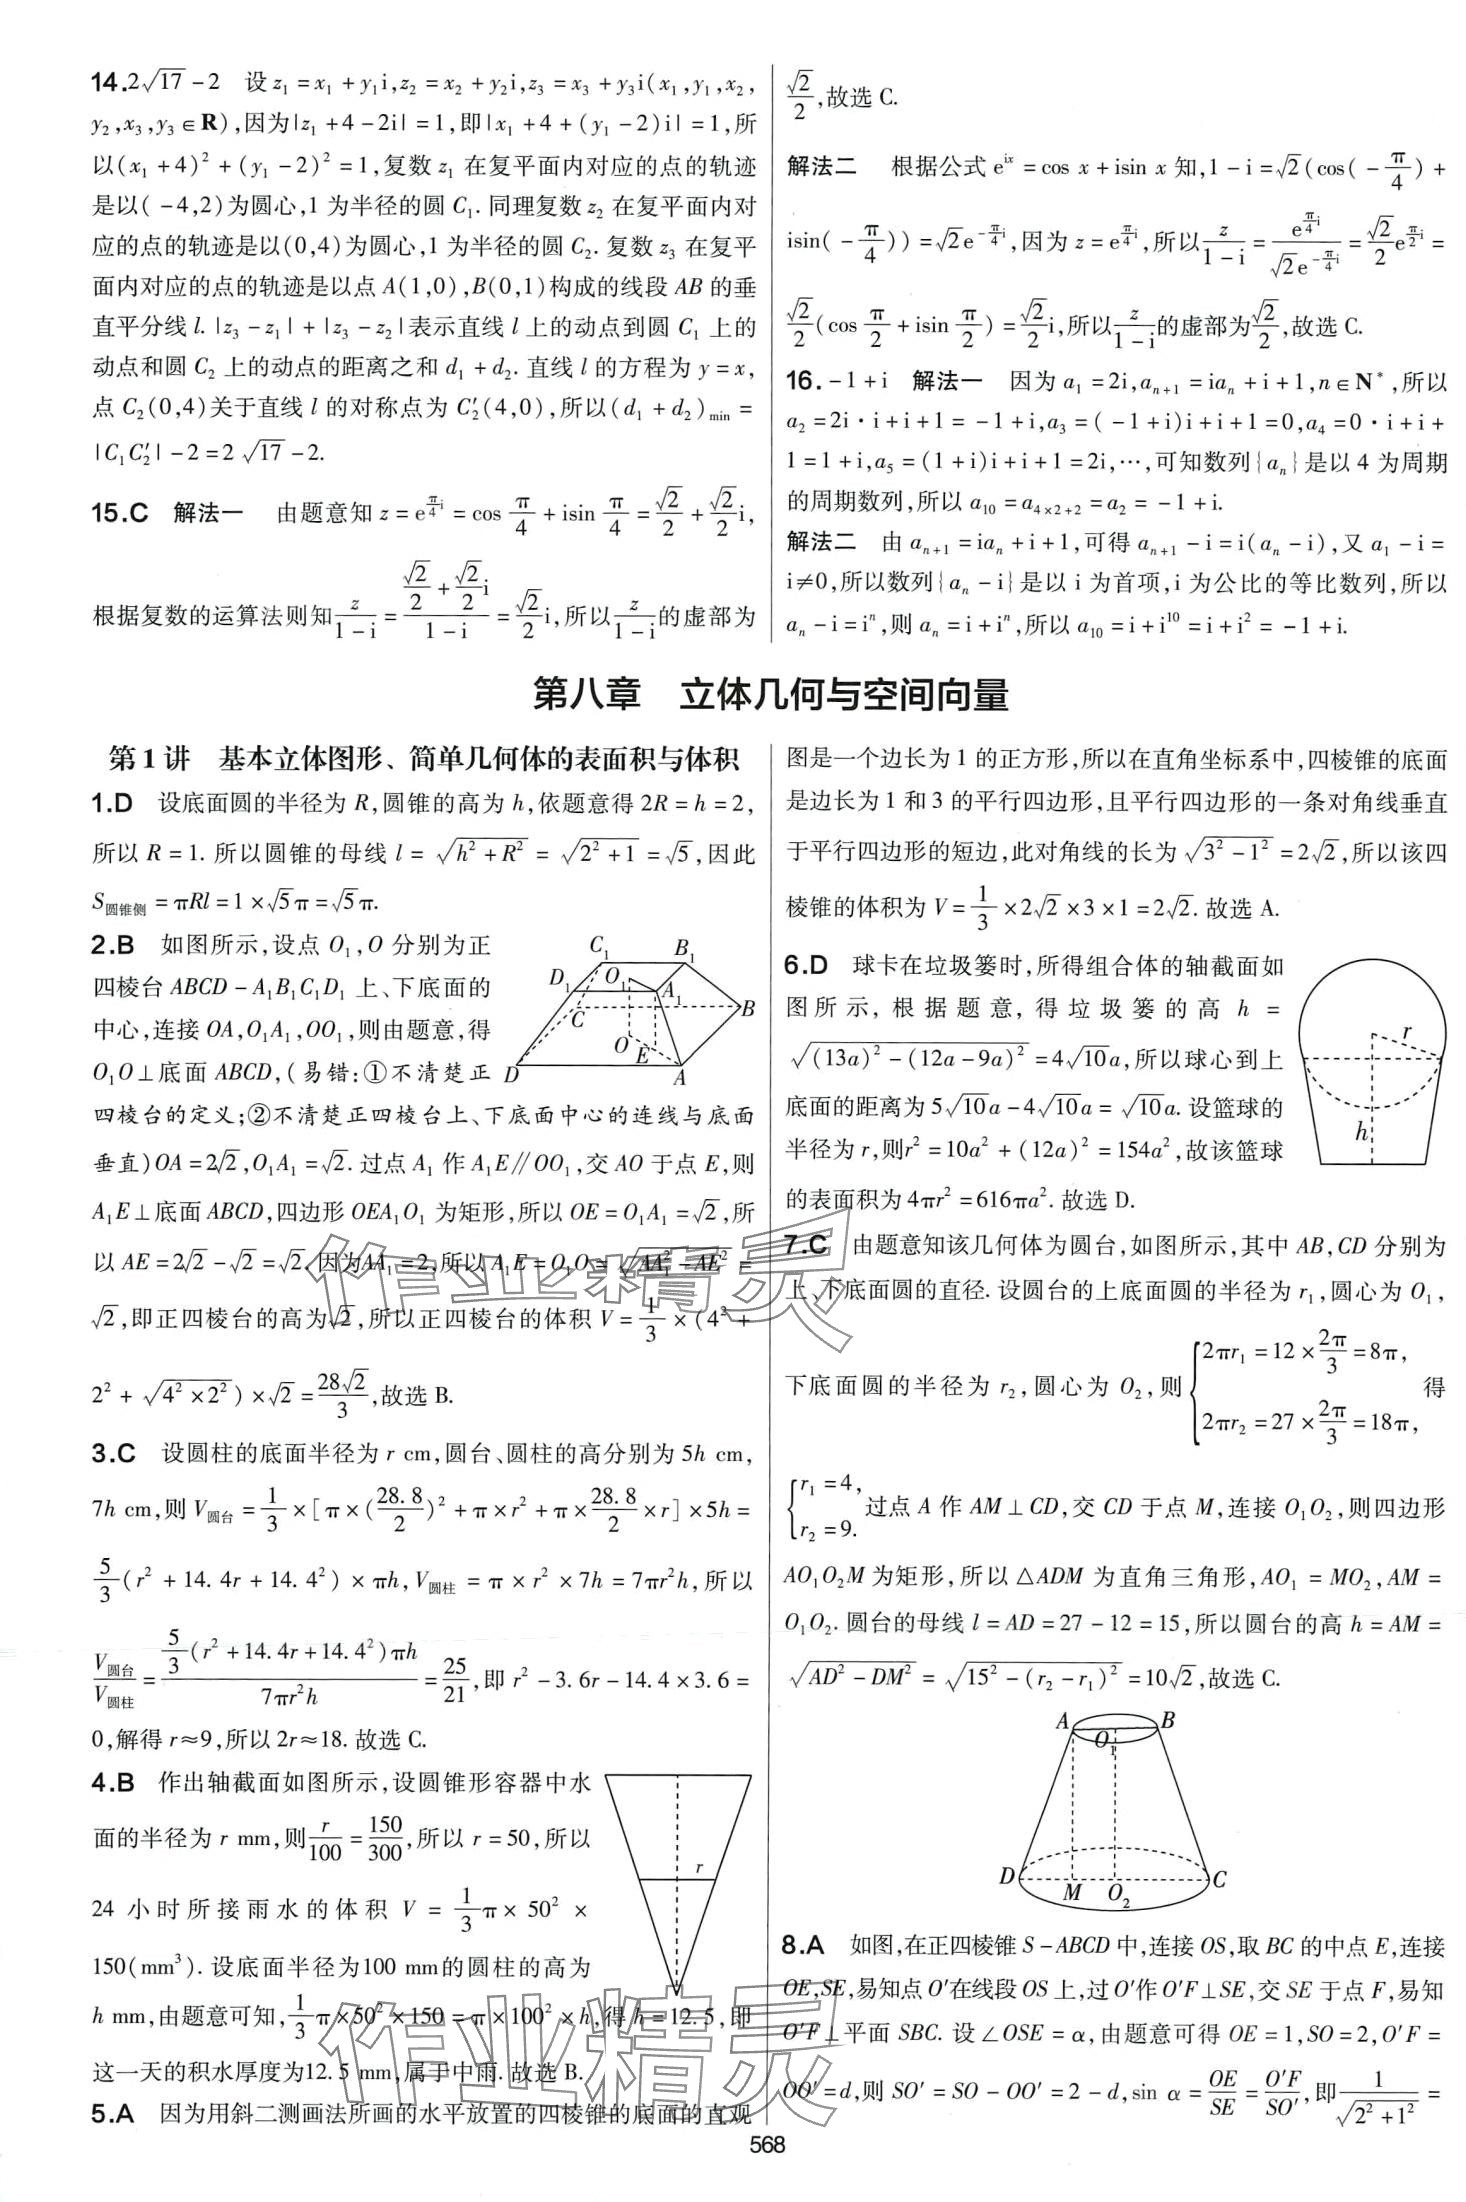 14. 2√17 - 2　设 z₁ = x₁ + y₁i, z₂ = x₂ + y₂i, z₃ = x₃ + y₃i(x₁, y₁, x₂,
y₂, x₃, y₃ ∈ R), 因为|z₁ + 4 - 2i| = 1, 即|x₁ + 4 + (y₁ - 2)i| = 1, 所
以(x₁ + 4)² + (y₁ - 2)² = 1, 复数 z₁ 在复平面内对应的点的轨迹
是以( - 4,2)为圆心, 1 为半径的圆 C₁. 同理复数 z₂ 在复平面内对
应的点的轨迹是以(0,4)为圆心, 1 为半径的圆 C₂. 复数 z₃ 在复平
面内对应的点的轨迹是以点 A(1,0), B(0,1)构成的线段 AB 的垂
直平分线 l. |z₃ - z₁| + |z₃ - z₂|表示直线 l 上的动点到圆 C₁ 上的
动点和圆 C₂ 上的动点的距离之和 d₁ + d₂. 直线 l 的方程为 y = x,
点 C₂(0,4)关于直线 l 的对称点为 C₂′(4,0), 所以(d₁ + d₂)min =
|C₁C₂′| - 2 = 2√17 - 2.
15. C　解法一　由题意知 z = e^(π/4 i) = cos π/4 + isin π/4 = √2/2 + √2/2 i,
根据复数的运算法则知 z/(1 - i) = (√2/2 + √2/2 i)/(1 - i) = √2/2 i, 所以 z/(1 - i) 的虚部为
√2/2, 故选 C.
解法二　根据公式 e^(ix) = cos x + isin x 知, 1 - i = √2(cos( - π/4) +
isin( - π/4)) = √2e^(-π/4 i), 因为 z = e^(π/4 i), 所以 z/(1 - i) = e^(π/4 i)/(√2e^(-π/4 i)) = √2/2 e^(π/2 i) =
√2/2(cos π/2 + isin π/2) = √2/2 i, 所以 z/(1 - i) 的虚部为 √2/2, 故选 C.
16. - 1 + i　解法一　因为 a₁ = 2i, aₙ₊₁ = iaₙ + i + 1, n ∈ N*, 所以
a₂ = 2i · i + i + 1 = - 1 + i, a₃ = ( - 1 + i)i + i + 1 = 0, a₄ = 0 · i + i +
1 = 1 + i, a₅ = (1 + i)i + i + 1 = 2i, …, 可知数列{aₙ}是以 4 为周期
的周期数列, 所以 a₁₀ = a₄ₓ₂₊₂ = a₂ = - 1 + i.
解法二　由 aₙ₊₁ = iaₙ + i + 1, 可得 aₙ₊₁ - i = i(aₙ - i), 又 a₁ - i =
i ≠ 0, 所以数列{aₙ - i}是以 i 为首项, i 为公比的等比数列, 所以
aₙ - i = iⁿ, 则 aₙ = i + iⁿ, 所以 a₁₀ = i + i¹⁰ = i + i² = - 1 + i.
第八章　立体几何与空间向量
第 1 讲　基本立体图形、简单几何体的表面积与体积
1. D　设底面圆的半径为 R, 圆锥的高为 h, 依题意得 2R = h = 2,
所以 R = 1. 所以圆锥的母线 l = √(h² + R²) = √(2² + 1) = √5, 因此
S圆锥侧 = πRl = 1 × √5π = √5π.
2. B　如图所示, 设点 O₁, O 分别为正
四棱台 ABCD - A₁B₁C₁D₁ 上、下底面的
中心, 连接 OA, O₁A₁, OO₁, 则由题意, 得
O₁O⊥底面 ABCD, (易错: ①不清楚正
四棱台的定义; ②不清楚正四棱台上、下底面中心的连线与底面
垂直) OA = 2√2, O₁A₁ = √2. 过点 A₁ 作 A₁E∥OO₁, 交 AO 于点 E, 则
A₁E⊥底面 ABCD, 四边形 OEA₁O₁ 为矩形, 所以 OE = O₁A₁ = √2, 所
以 AE = 2√2 - √2 = √2. 因为AA₁ = 2, 所以 A₁E = O₁O = √(AA₁² - AE²) =
√2, 即正四棱台的高为√2, 所以正四棱台的体积 V = 1/3 × (4² +
2² + √(4² × 2²)) × √2 = 28√2/3, 故选 B.
C₁ B₁ D₁ O₁ A₁ C B O E D A
3. C　设圆柱的底面半径为 r cm, 圆台、圆柱的高分别为 5h cm,
7h cm, 则 V圆台 = 1/3 × [π × (28.8/2)² + π × r² + π × 28.8/2 × r] × 5h =
5/3(r² + 14.4r + 14.4²) × πh, V圆柱 = π × r² × 7h = 7πr²h, 所以
V圆台/V圆柱 = 5/3(r² + 14.4r + 14.4²)πh/(7πr²h) = 25/21, 即 r² - 3.6r - 14.4 × 3.6 =
0, 解得 r≈9, 所以 2r≈18. 故选 C.
4. B　作出轴截面如图所示, 设圆锥形容器中水
面的半径为 r mm, 则 r/100 = 150/300, 所以 r = 50, 所以
24 小时所接雨水的体积 V = 1/3 π × 50² ×
150(mm³). 设底面半径为100 mm的圆柱的高为
h mm, 由题意可知, 1/3 π × 50² × 150 = π × 100² × h, 得 h = 12.5, 即
这一天的积水厚度为12.5 mm, 属于中雨. 故选 B.
r
5. A　因为用斜二测画法所画的水平放置的四棱锥的底面的直观
图是一个边长为 1 的正方形, 所以在直角坐标系中, 四棱锥的底面
是边长为 1 和 3 的平行四边形, 且平行四边形的一条对角线垂直
于平行四边形的短边, 此对角线的长为 √(3² - 1²) = 2√2, 所以该四
棱锥的体积为 V = 1/3 × 2√2 × 3 × 1 = 2√2. 故选 A.
6. D　球卡在垃圾篓时, 所得组合体的轴截面如
图所示, 根据题意, 得垃圾篓的高 h =
√((13a)² - (12a - 9a)²) = 4√10a, 所以球心到上
底面的距离为 5√10a - 4√10a = √10a. 设篮球的
半径为 r, 则r² = 10a² + (12a)² = 154a², 故该篮球
的表面积为 4πr² = 616πa². 故选 D.
r h
7. C　由题意知该几何体为圆台, 如图所示, 其中 AB, CD 分别为
上、下底面圆的直径. 设圆台的上底面圆的半径为 r₁, 圆心为 O₁,
下底面圆的半径为 r₂, 圆心为 O₂, 则 {2πr₁ = 12 × 2π/3 = 8π, 2πr₂ = 27 × 2π/3 = 18π, 得
{r₁ = 4, r₂ = 9. 过点 A 作 AM⊥CD, 交 CD 于点 M, 连接 O₁O₂, 则四边形
AO₁O₂M 为矩形, 所以△ADM 为直角三角形, AO₁ = MO₂, AM =
O₁O₂. 圆台的母线 l = AD = 27 - 12 = 15, 所以圆台的高 h = AM =
√(AD² - DM²) = √(15² - (r₂ - r₁)²) = 10√2, 故选 C.
A B O₁ D M O₂ C
8. A　如图, 在正四棱锥 S - ABCD 中, 连接 OS, 取 BC 的中点 E, 连接
OE, SE, 易知点 O′在线段 OS 上, 过 O′作 O′F⊥SE, 交 SE 于点 F, 易知
O′F⊥平面 SBC. 设∠OSE = α, 由题意可得 OE = 1, SO = 2, O′F =
OO′ = d, 则 SO′ = SO - OO′ = 2 - d, sin α = OE/SE = O′F/SO′, 即 1/√(2² + 1²) =
568
作业精灵
作业精灵